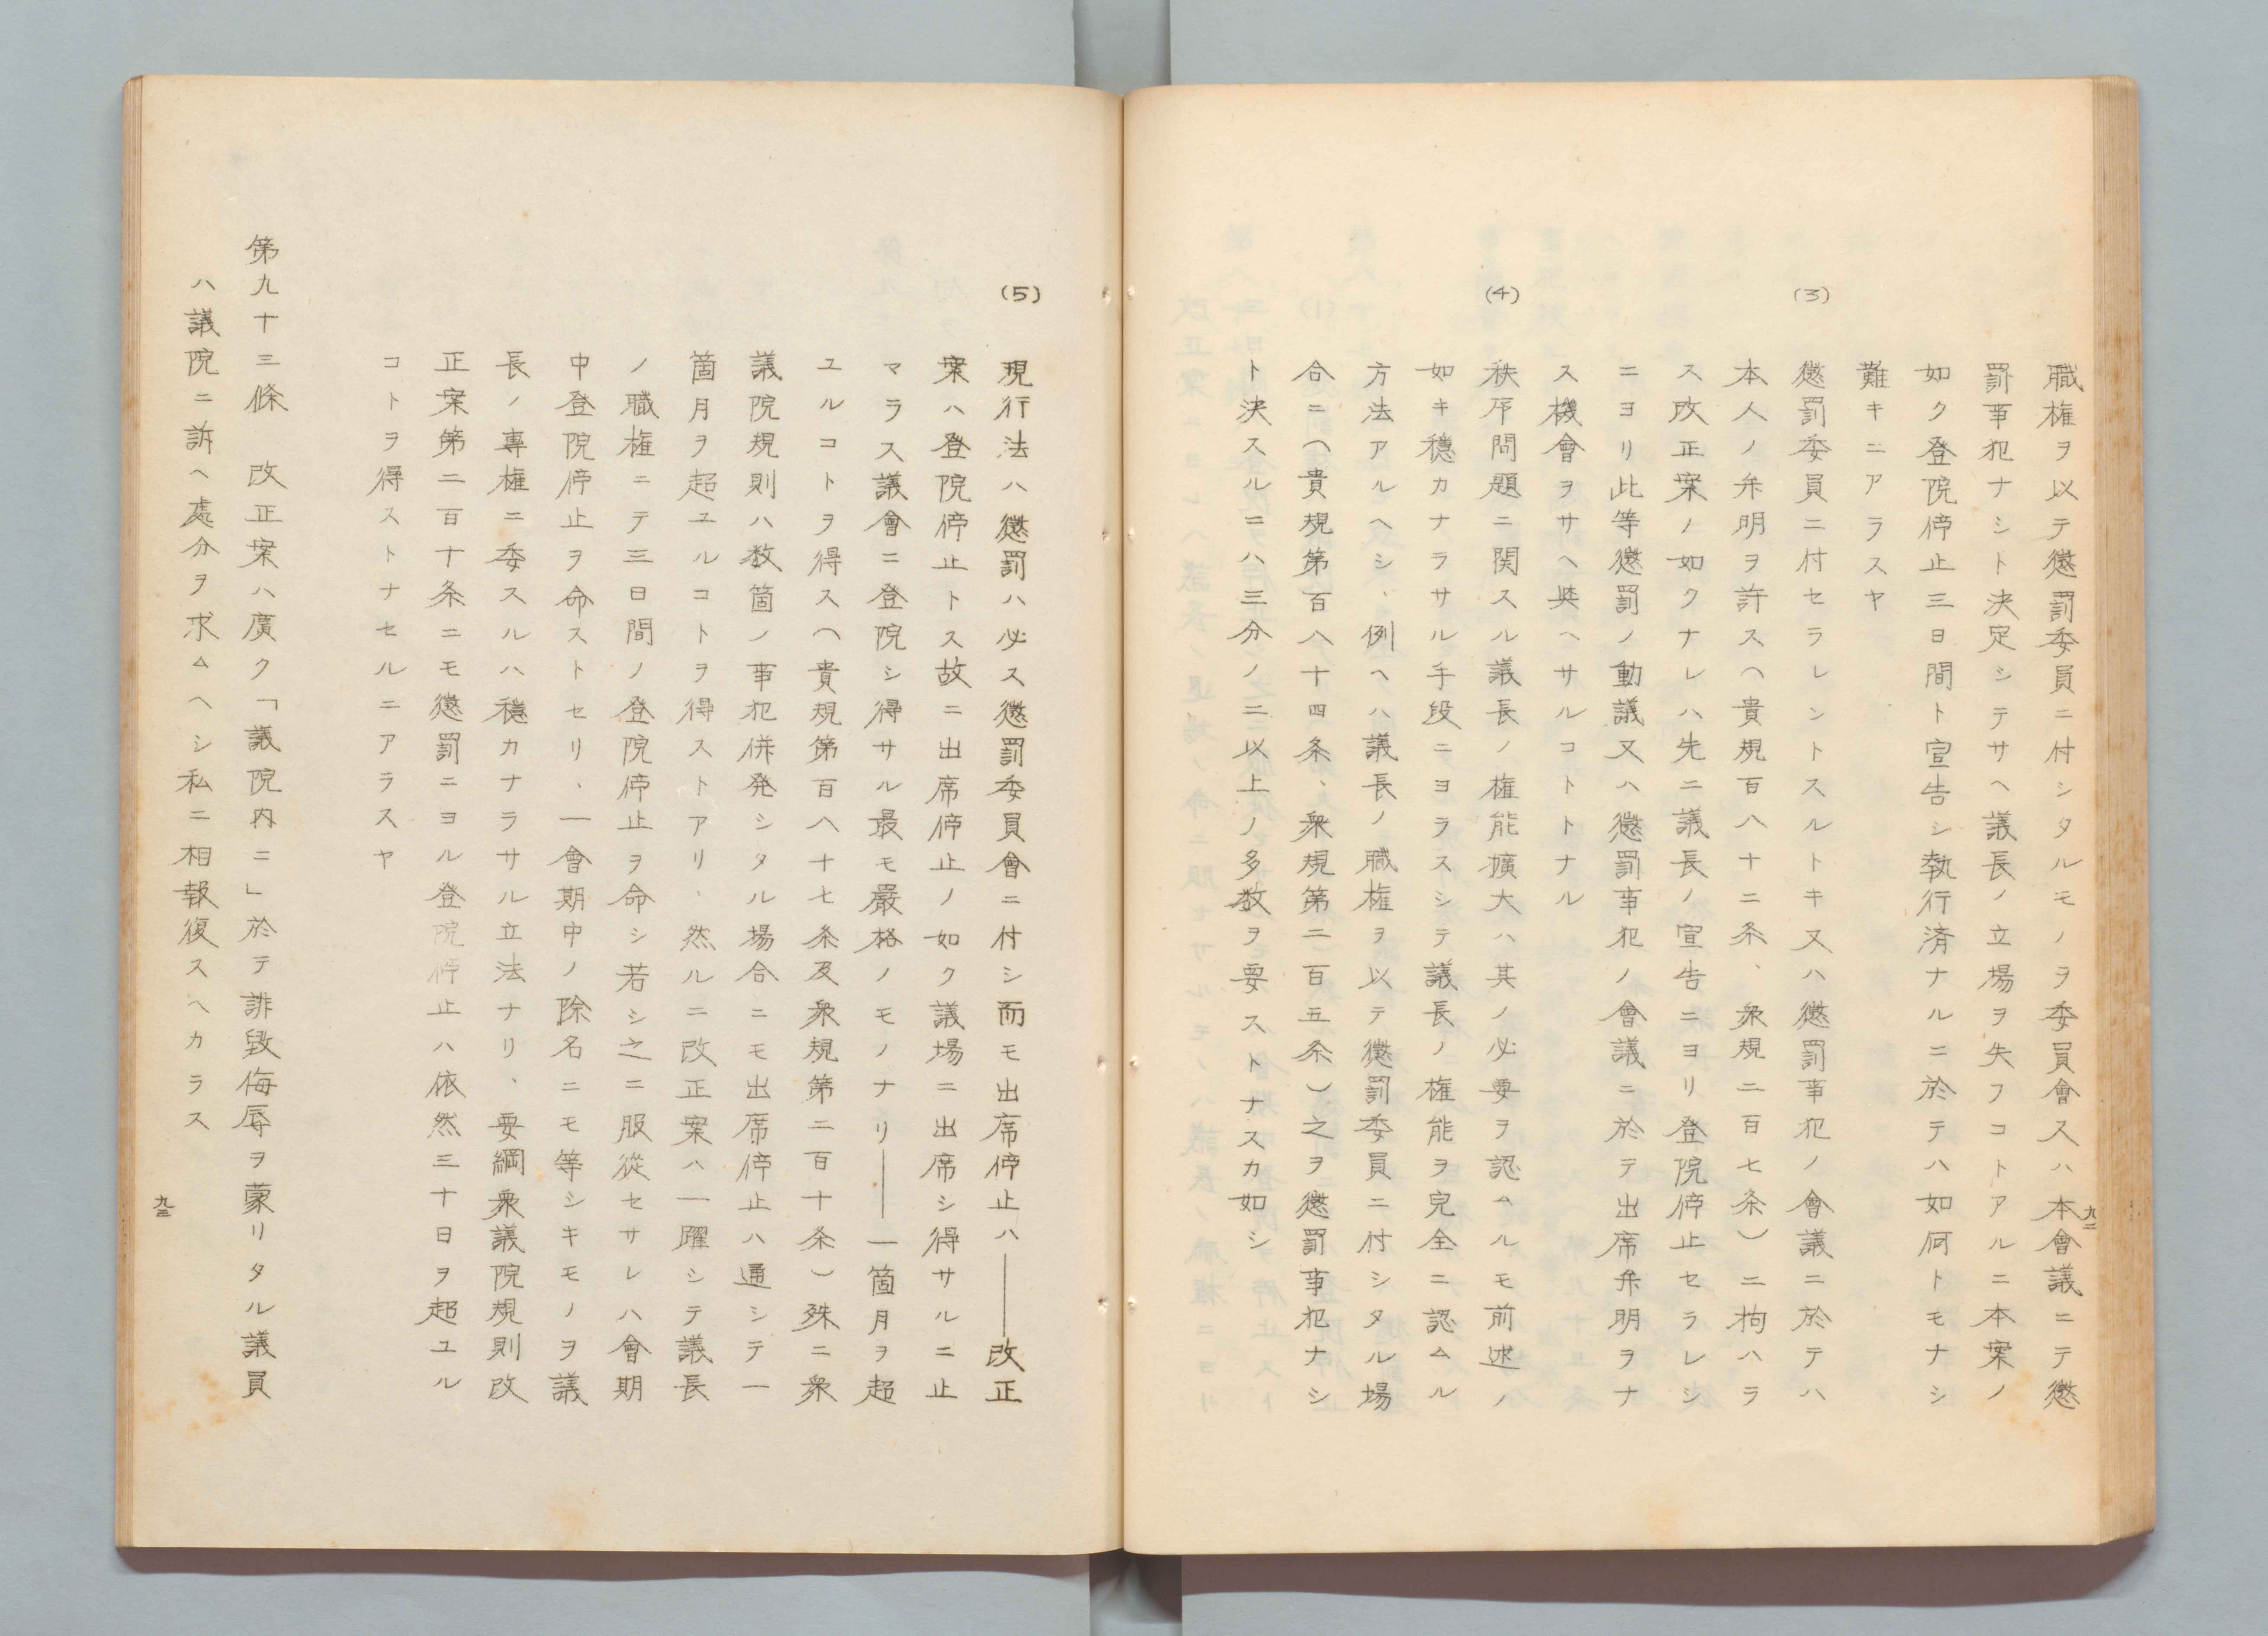 職権ヲ以テ懲罰委員ニ付シタルモノヲ委員會又ハ本會議ニテ懲
罰事犯ナシト決定シテサヘ議長ノ立場ヲ失フコトアルニ本案ノ
如ク登院停止三日間ト宣告シ執行済ナルニ於テハ如何トモナシ
難キニアラスヤ
(3)
懲罰委員ニ付セラレントスルトキ又ハ懲罰事犯ノ會議ニ於テハ
本人ノ弁明ヲ許ス(貴規百八十二条、衆規二百七条)ニ拘ハラ
ス改正案ノ如クナレハ先ニ議長ノ宣告ニヨリ登院停止セラレシ
ニヨリ此等懲罰ノ動議又ハ懲罰事犯ノ會議ニ於テ出席弁明ヲナ
ス機會ヲサヘ與ヘサルコトトナル
(4)
秩序問題ニ関スル議長ノ権能擴大ハ其ノ必要ヲ認ムルモ前述ノ
如キ穏カナラサル手段ニヨラスシテ議長ノ権能ヲ完全ニ認ムル
方法アルヘシ、例ヘハ議長ノ職権ヲ以テ懲罰委員ニ付シタル場
合ニ(貴規第百八十四条、衆規第二百五条)之ヲ懲罰事犯ナシ
ト決スルニハ三分ノ二以上ノ多数ヲ要ストナスカ如シ
九二
(5)
現行法ハ懲罰ハ必ス懲罰委員會ニ付シ而モ出席停止ハ――改正
案ハ登院停止トス故ニ出席停止ノ如ク議場ニ出席シ得サルニ止
マラス議會ニ登院シ得サル最モ嚴格ノモノナリ――一箇月ヲ超
ユルコトヲ得ス(貴規第百八十七条及衆規第二百十条)殊ニ衆
議院規則ハ数箇ノ事犯併発シタル場合ニモ出席停止ハ通シテ一
箇月ヲ超ユルコトヲ得ストアリ、然ルニ改正案ハ一躍シテ議長
ノ職権ニテ三日間ノ登院停止ヲ命シ若シ之ニ服從セサレハ會期
中登院停止ヲ命ストセリ、一會期中ノ除名ニモ等シキモノヲ議
長ノ專権ニ委スルハ穏カナラサル立法ナリ、要綱衆議院規則改
正案第二百十条ニモ懲罰ニヨル登院停止ハ依然三十日ヲ超ユル
コトヲ得ストナセルニアラスヤ
第九十三條　改正案ハ廣ク「議院内ニ」於テ誹毀侮辱ヲ蒙リタル議員
ハ議院ニ訴ヘ處分ヲ求ムヘシ私ニ相報復スヘカラス
九三